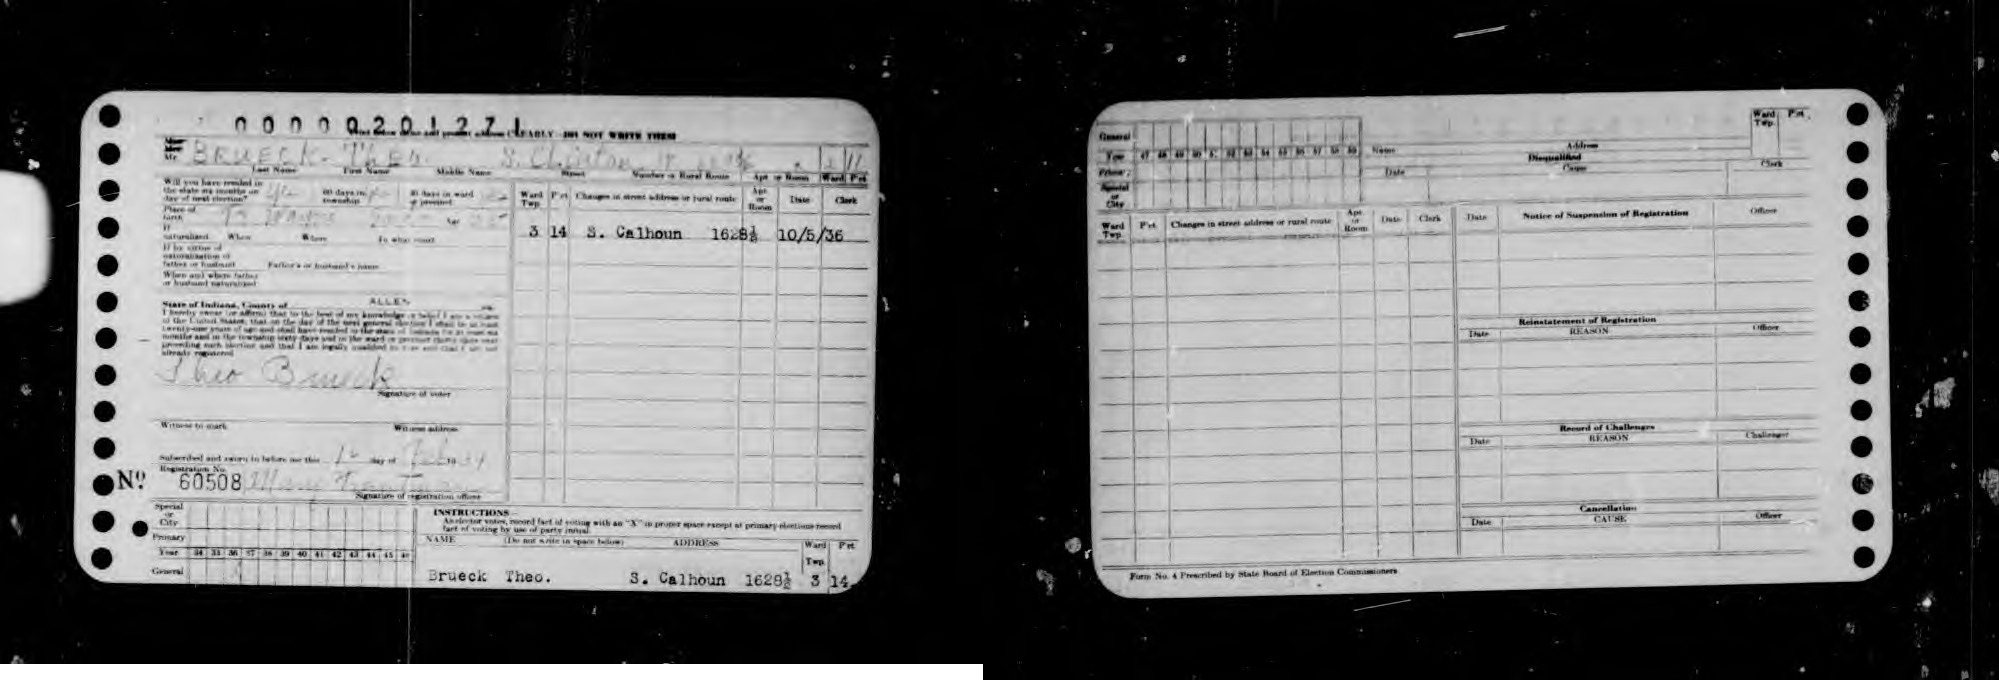 0000201271
Print below name and present address CLEARLY DO NOT WRITE THEM
Mr. BRUECK. Theo. S. Clinton 11
Last Name First Name Middle Name Street Number or Rural Route Apt or Room Ward P'ct
Will you have resided in
the state six months on 60 days in 30 days in ward
day of next election? township or precinct
Place of
birth Ft Wayne Age
If
naturalized When Where In what court
If by virtue of
naturalization of
father or husband Father's or husband's name
When and where father
or husband naturalized
State of Indiana, County of ALLEN
I hereby swear (or affirm) that to the best of my knowledge or belief I am a citizen
of the United States; that on the day of the next general election I shall be at least
twenty-one years of age and shall have resided in the state of Indiana for at least six
months and in the township sixty days and in the ward or precinct thirty days next
preceding such election and that I am legally qualified to vote and that I am not
already registered
Theo Brueck
Signature of voter
Witness to mark Witness address
Subscribed and sworn to before me this day of
Registration No.
Nº 60508 Mary
Signature of registration officer
Ward Twp. P'ct Changes in street address or rural route Apt or Room Date Clerk
3 14 S. Calhoun 1628½ 10/5/36
Special
or
City
Primary
Year 34 35 36 37 38 39 40 41 42 43 44 45 46
General
INSTRUCTIONS
As elector votes, record fact of voting with an "X" in proper space except at primary elections record
fact of voting by use of party initial.
NAME (Do not write in space below) ADDRESS Ward Twp. P'ct
Brueck Theo. S. Calhoun 1628½ 3 14
Ward Twp. P'ct.
General
Year 47 48 49 50 51 52 53 54 55 56 57 58 59
Prim'y
Special
or
City
Name Address
Disqualified
Date Cause Clerk
Ward Twp. P'ct. Changes in street address or rural route Apt or Room Date Clerk
Date Notice of Suspension of Registration Officer
Reinstatement of Registration
Date REASON Officer
Record of Challenges
Date REASON Challenger
Cancellation
Date CAUSE Officer
Form No. 4 Prescribed by State Board of Election Commissioners